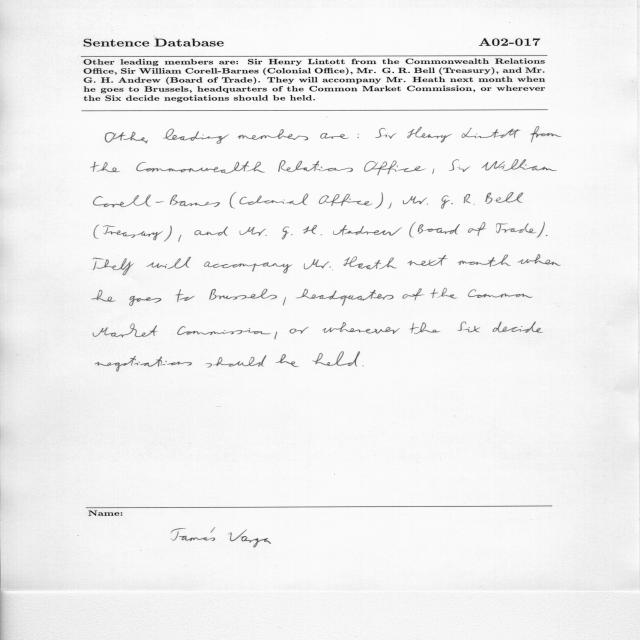 Sentence Database A02-017
Other leading members are: Sir Henry Lintott from the Commonwealth Relations
Office, Sir William Corell-Barnes (Colonial Office), Mr. G. R. Bell (Treasury), and Mr.
G. H. Andrew (Board of Trade). They will accompany Mr. Heath next month when
he goes to Brussels, headquarters of the Common Market Commission, or wherever
the Six decide negotiations should be held.
Other leading members are: Sir Henry Lintott from
the Commonwealth Relations Office, Sir William
Corell-Barnes (Colonial Office), Mr. G. R. Bell
(Treasury), and Mr. G. H. Andrew (Board of Trade).
They will accompany Mr. Heath next month when
he goes to Brussels, headquaters of the Common
Market Commission, or wherever the Six decide
negotiations should be held.
Name:
Tamás Varga